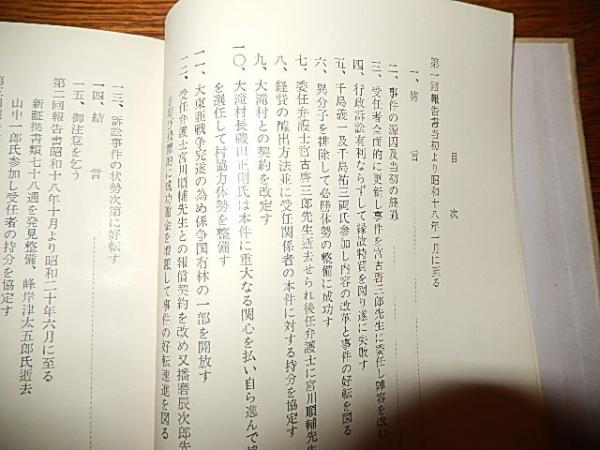 目次
第一回報告書当初より昭和十八年一月に至る
一、緒言
二、事件の原因及当初の経過
三、受任者全面的に更新し事件を宮古啓三郎先生に委任し陣容を改む
四、行政訴訟有利ならずして縁故特質を図り遂に失敗す
五、千島義一及千島祐三両氏参加し内容の改革と事件の好転を図る
六、異分子を排除して必勝体勢の整備に成功す
七、委任弁護士宮古啓三郎先生逝去せられ後任弁護士に宮川順輔先生
八、経費の醵出方法並に受任関係者の本件に対する持分を協定す
九、大滝村との契約を改定す
一〇、大滝村長磯田正則氏は本件に重大なる関心を払い自ら進んで
を選任して村協力体勢を整備す
一一、大東亜戦争完遂の為め係争国有林の一部を開放す
一二、受任弁護士宮川順輔先生との報償契約を改め又播磨辰次郎先
成功謝金を増額して事件の好転速進を図る
一三、訴訟事件の状勢次第に好転す
一四、結言
一五、御注意を乞う
第二回報告書昭和十八年十月より昭和二十年六月に至る
新証拠書類七十八通を発見整備、峰岸津太五郎氏逝去
山中一郎氏参加し受任者の持分を協定す